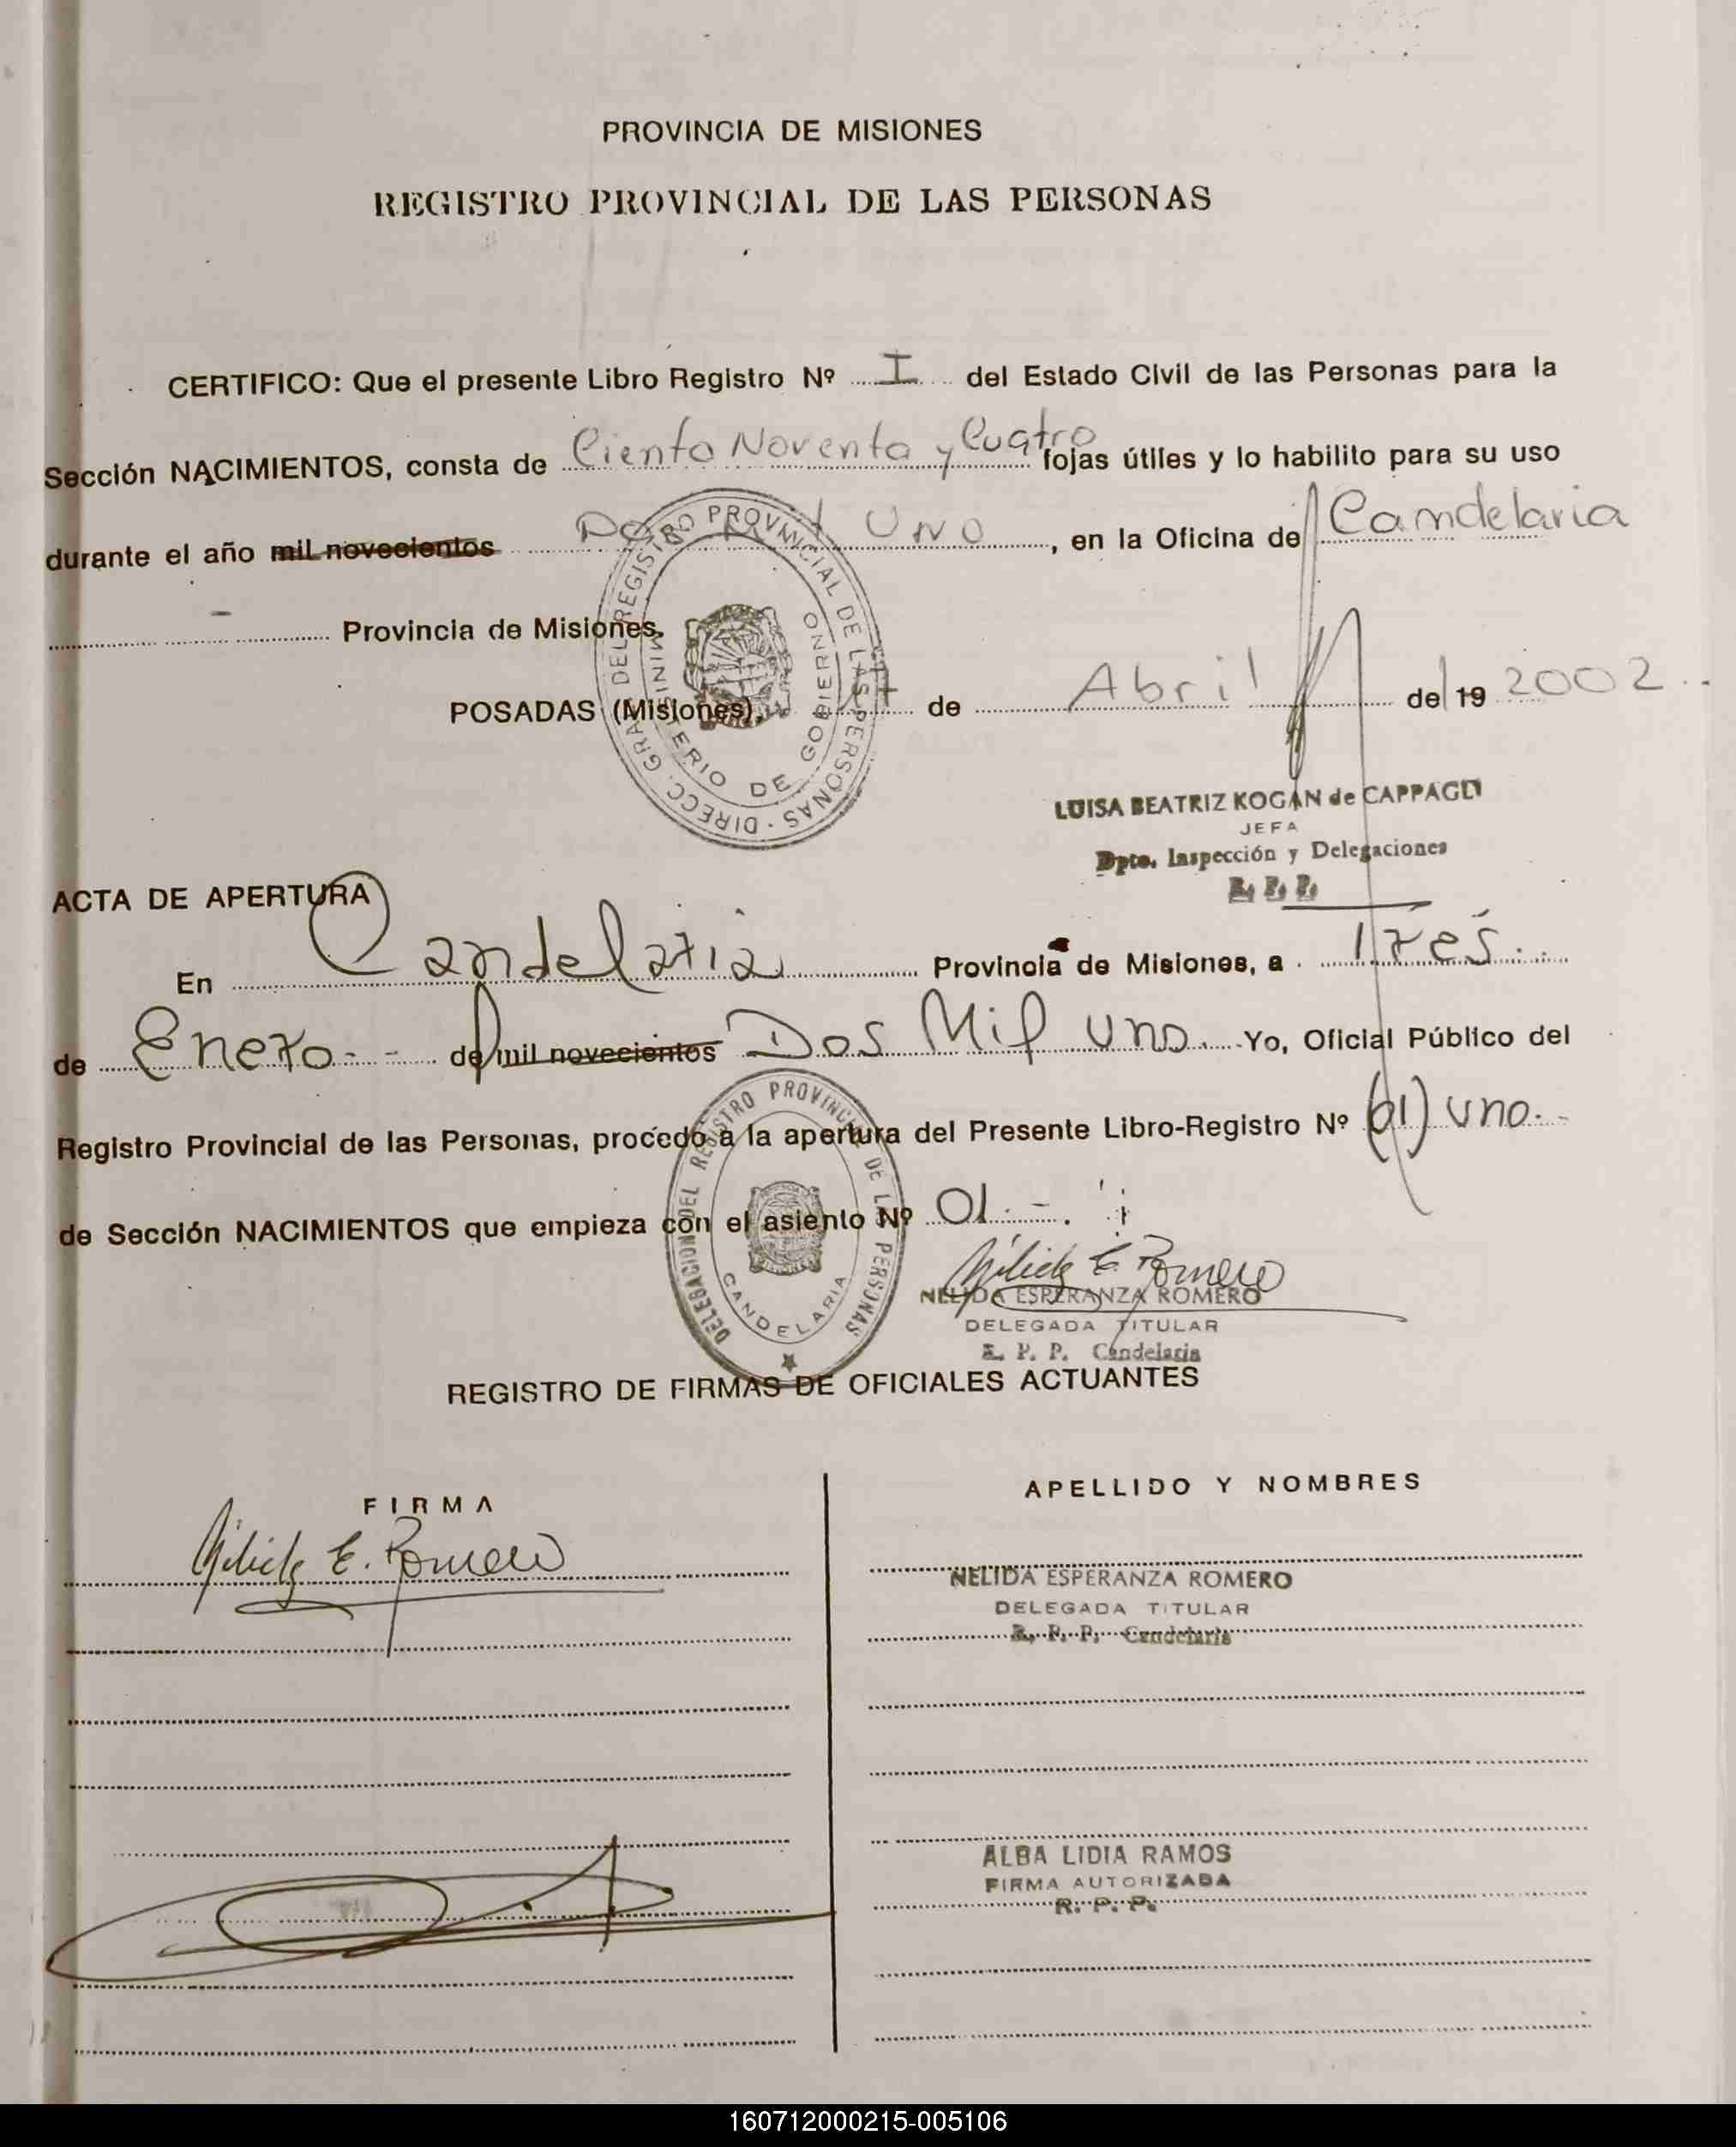 PROVINCIA DE MISIONES
REGISTRO PROVINCIAL DE LAS PERSONAS
CERTIFICO: Que el presente Libro Registro Nº I del Estado Civil de las Personas para la
Sección NACIMIENTOS, consta de Ciento Noventa y Cuatro fojas útiles y lo habilito para su uso
durante el año mil novecientos Uno, en la Oficina de Candelaria
- Provincia de Misiones.
POSADAS (Misiones), de Abril de 19 2002
DIRECC. GRAL. DEL REGISTRO PROVINCIAL DE LAS PERSONAS
MINISTERIO DE GOBIERNO
LUISA BEATRIZ KOGAN de CAPPAGLI
JEFA
Dpto. Inspección y Delegaciones
R. P. P.
ACTA DE APERTURA
En Candelaria Provincia de Misiones, a Tres
de Enero de mil novecientos Dos Mil Uno. Yo, Oficial Público del
Registro Provincial de las Personas, procedo a la apertura del Presente Libro-Registro Nº (01) uno.
de Sección NACIMIENTOS que empieza con el asiento Nº 01
DELEGACION DEL REGISTRO PROVINCIAL DE LAS PERSONAS
CANDELARIA
Nélida E. Romero
NELIDA ESPERANZA ROMERO
DELEGADA TITULAR
R. P. P. Candelaria
REGISTRO DE FIRMAS DE OFICIALES ACTUANTES
FIRMA
APELLIDO Y NOMBRES
Nélida E. Romero
NELIDA ESPERANZA ROMERO
DELEGADA TITULAR
R. P. P. Candelaria
ALBA LIDIA RAMOS
FIRMA AUTORIZADA
R. P. P.
160712000215-005106